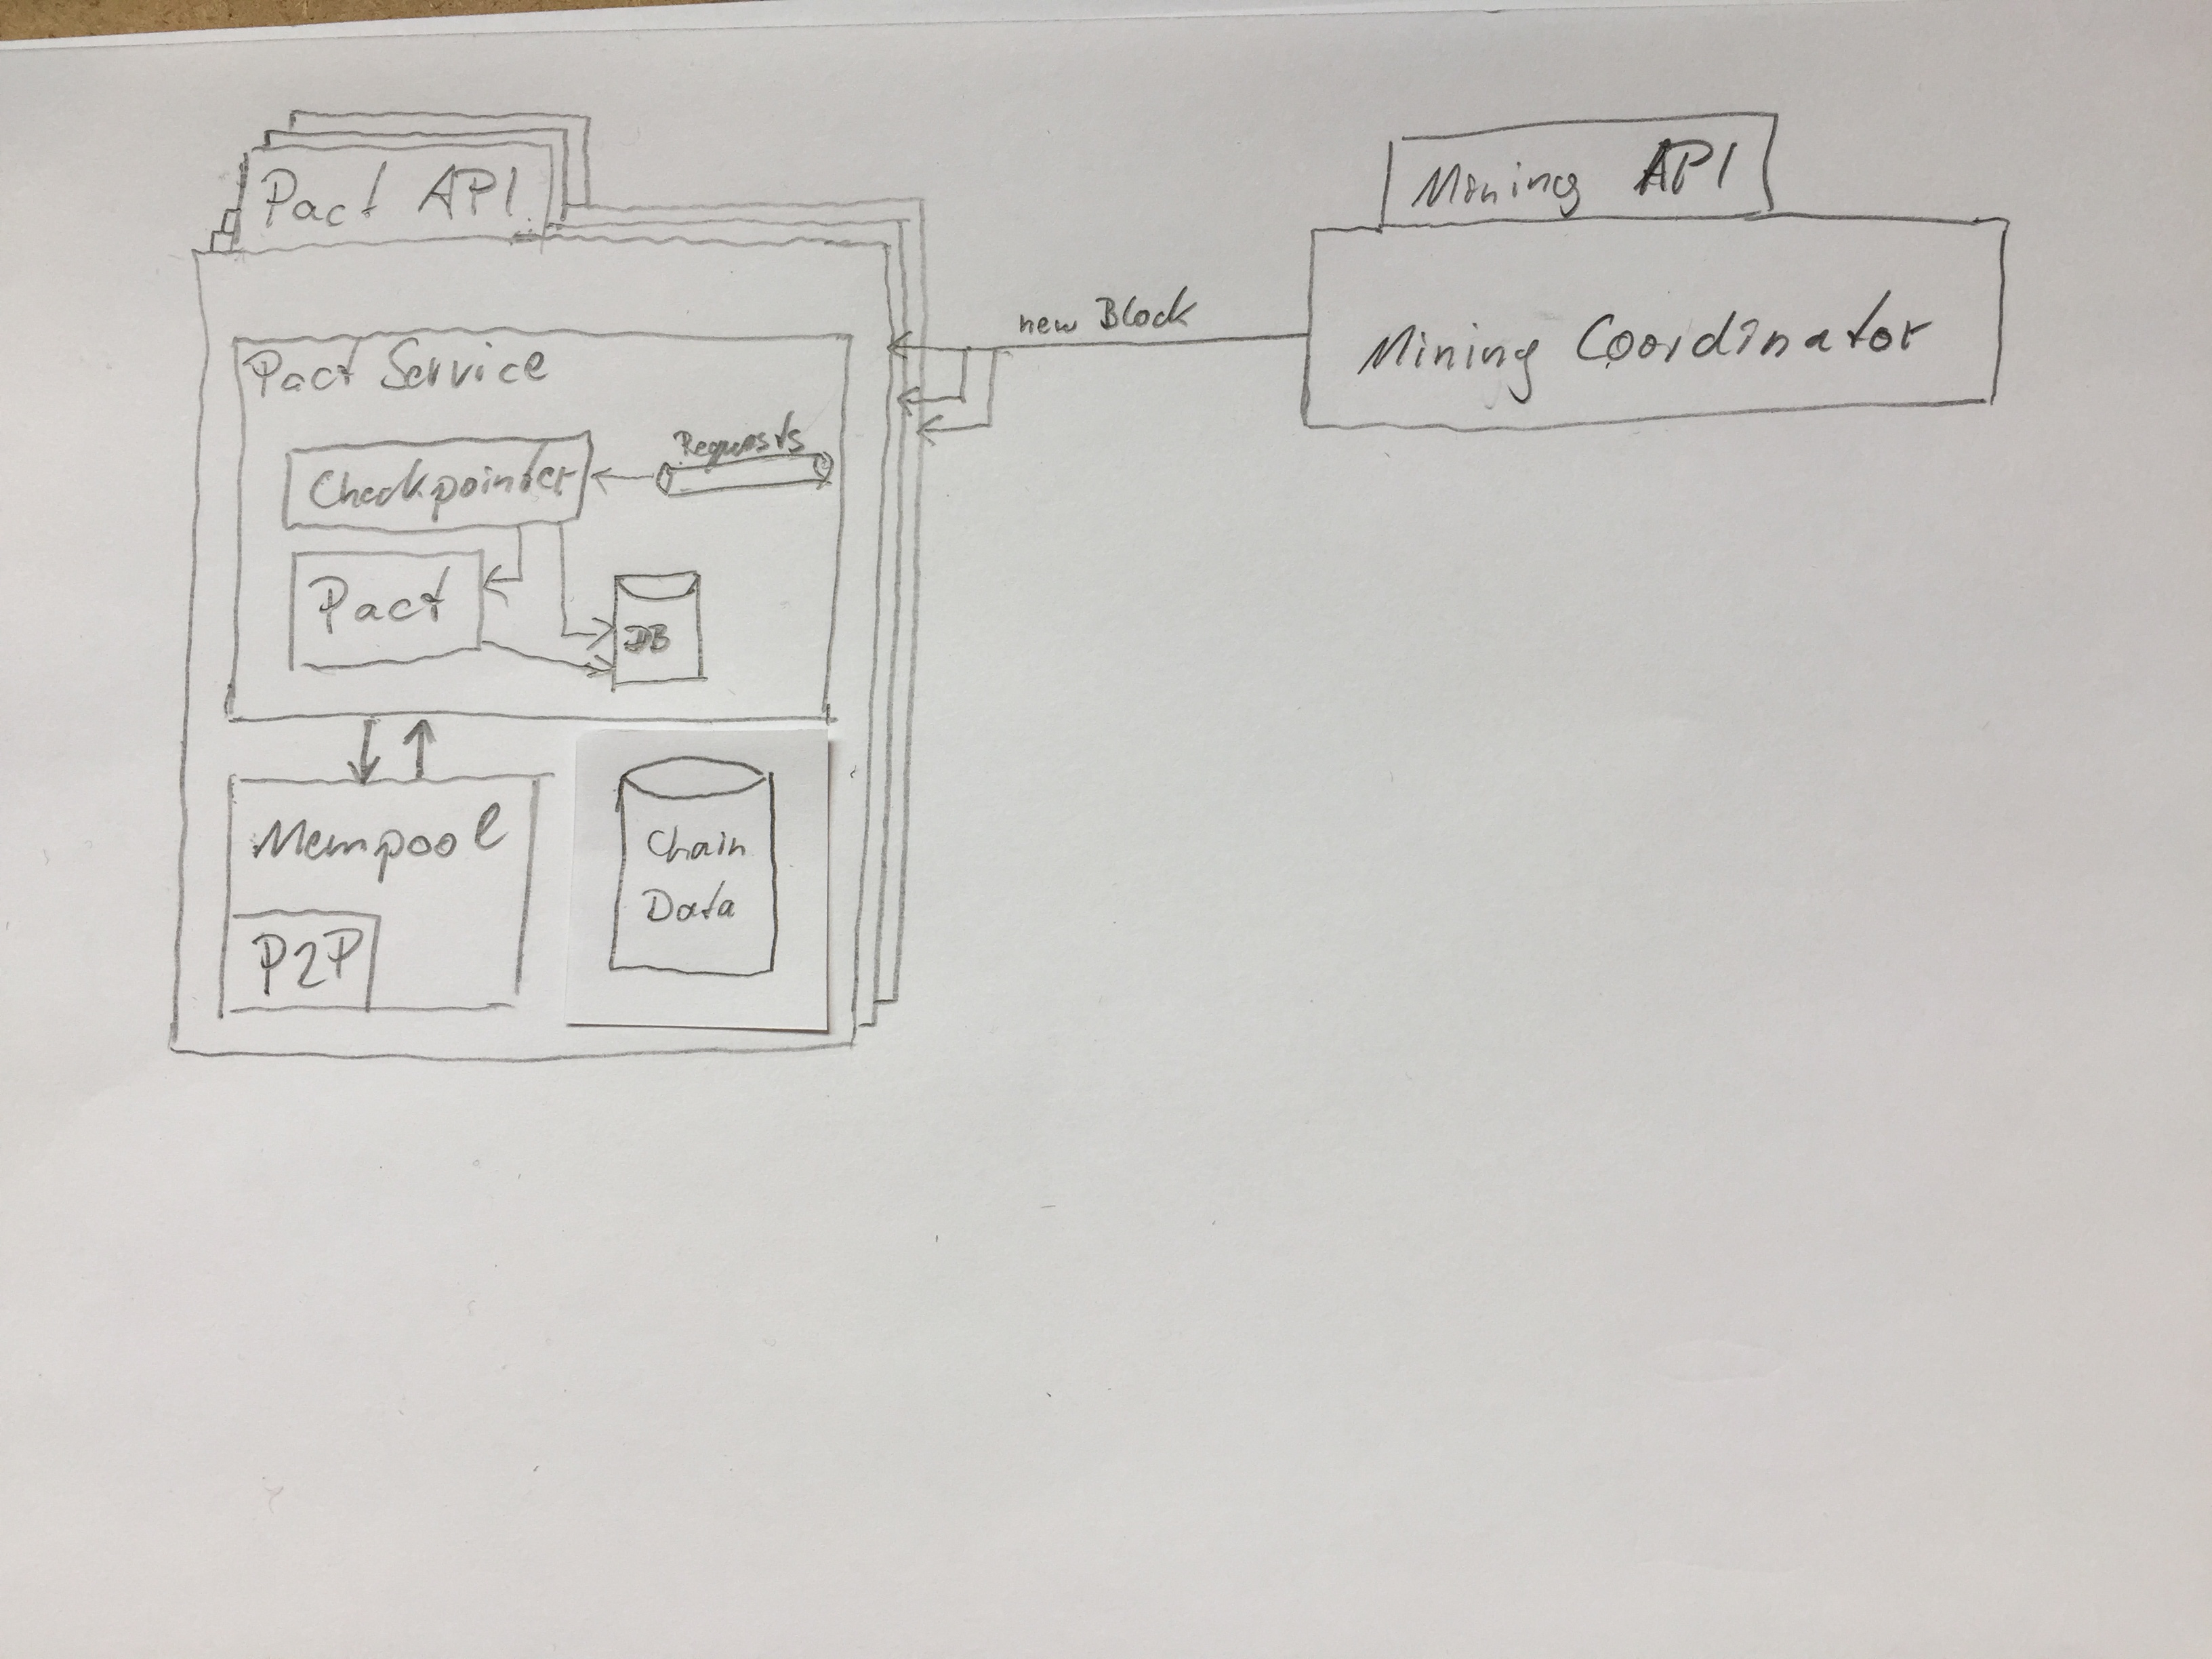 Pact API
Pact Service
Checkpointer
Requests
Pact
DB
Mempool
P2P
Chain
Data
new Block
Mining API
Mining Coordinator